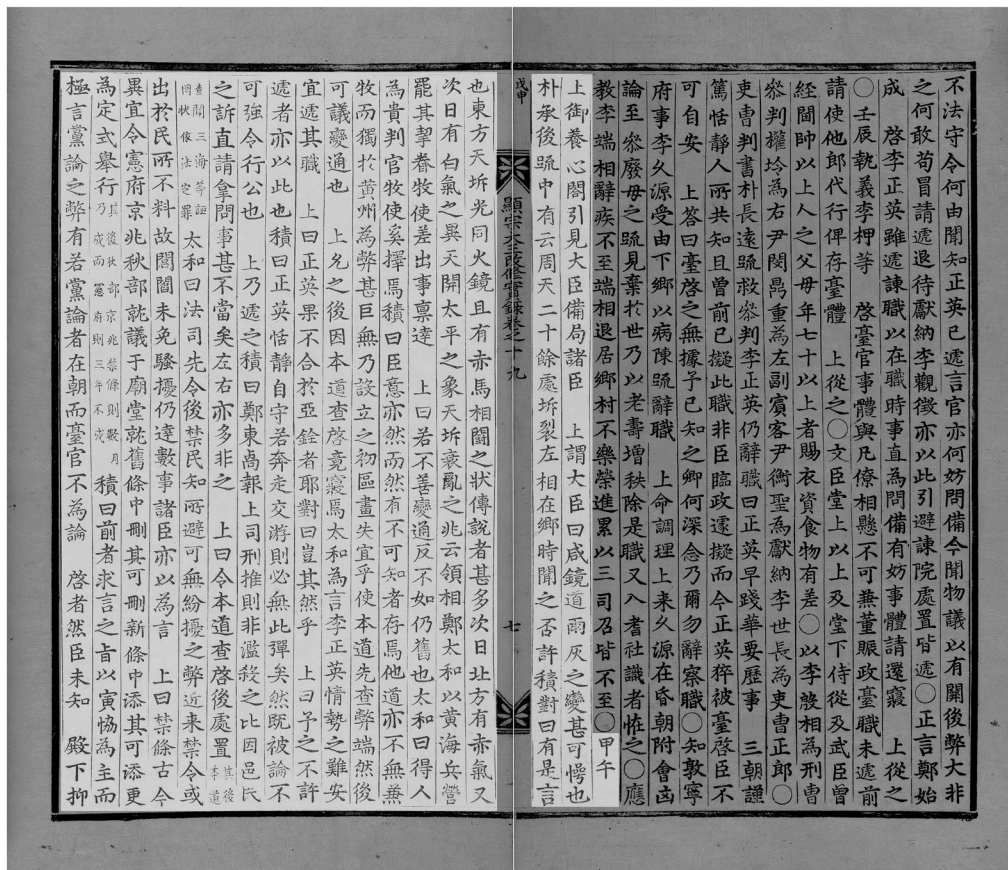 不法守令何由聞知正英已遞言官亦何妨問備今聞物議以有關後弊大非
之何敢苟冒請遞退待獻納李觀徵亦以此引避諫院處置皆遞○正言鄭始
成　啓李正英雖遞諫職以在職時事直為問備有妨事體請還寢　上從之
○壬辰執義李柙等　啓臺官事體與凡僚相懸不可兼董賑政臺職未遞前
請使他郎代行俾存臺體　上從之○文臣堂上以上及堂下侍從及武臣曾
經閫帥以上人之父母年七十以上者賜衣資食物有差○以李殷相為刑曹
參判權坽為右尹閔鼎重為左副賓客尹衡聖為獻納李世長為吏曹正郎○
吏曹判書朴長遠疏救參判李正英仍辭職曰正英早踐華要歷事　三朝謹
篤恬靜人所共知且曾前已擬此職非臣臨政遽擬而今正英猝被臺啓臣不
可自安　上答曰臺啓之無據予已知之卿何深念乃爾勿辭察職○知敦寧
府事李久源受由下鄉以病陳疏辭職　上命調理上来久源在昏朝附會凶
論至參廢母之疏見棄於世乃以老壽增秩除是職又入耆社識者恠之○應
教李端相辭疾不至端相退居鄉村不樂榮進累以三司召皆不至○甲午
上御養心閤引見大臣備局諸臣　上謂大臣曰咸鏡道雨灰之變甚可愕也
朴承後疏中有云周天二十餘處坼裂左相在鄉時聞之否許積對曰有是言
戊申
顯宗大王改修實錄卷之十九　七
也東方天坼光同火鏡且有赤馬相鬪之狀傳說者甚多次日北方有赤氣又
次日有白氣之異天開太平之象天坼衰亂之兆云領相鄭太和以黃海兵營
罷其挈眷牧使差出事稟達　上曰若不善變通反不如仍舊也太和曰得人
為貴判官牧使奚擇焉積曰臣意亦然而然有不可知者存焉他道亦不無兼
牧而獨於黃州為弊甚巨無乃設立之初區畫失宜乎使本道先查弊端然後
可議變通也　上允之後因本道查啓竟寢焉太和為言李正英情勢之難安
宜遞其職　上曰正英果不合於亞銓者耶對曰豈其然乎　上曰予之不許
遞者亦以此也積曰正英恬靜自守若奔走交游則必無此彈矣然既被論不
可強令行公也　上乃遞之積曰鄭東卨報上司刑推則非濫殺之比因邑民
之訴直請拿問事甚不當矣左右亦多非之　上曰令本道查啓後處置其後李道
查聞三海等誣罔狀依法定罪　太和曰法司先令後禁民知所避可無紛擾之弊近来禁令或
出於民所不料故閭閻未免騷擾仍達數事諸臣亦以為言　上曰禁條古今
異宜令憲府京兆秋部就議于廟堂就舊條中刪其可刪新條中添其可添更
為定式舉行其後秋部京兆禁條則數月乃成而憲府則三年不成　積曰前者求言之旨以寅恊為主而
極言黨論之弊有若黨論者在朝而臺官不為論　啓者然臣未知　殿下抑